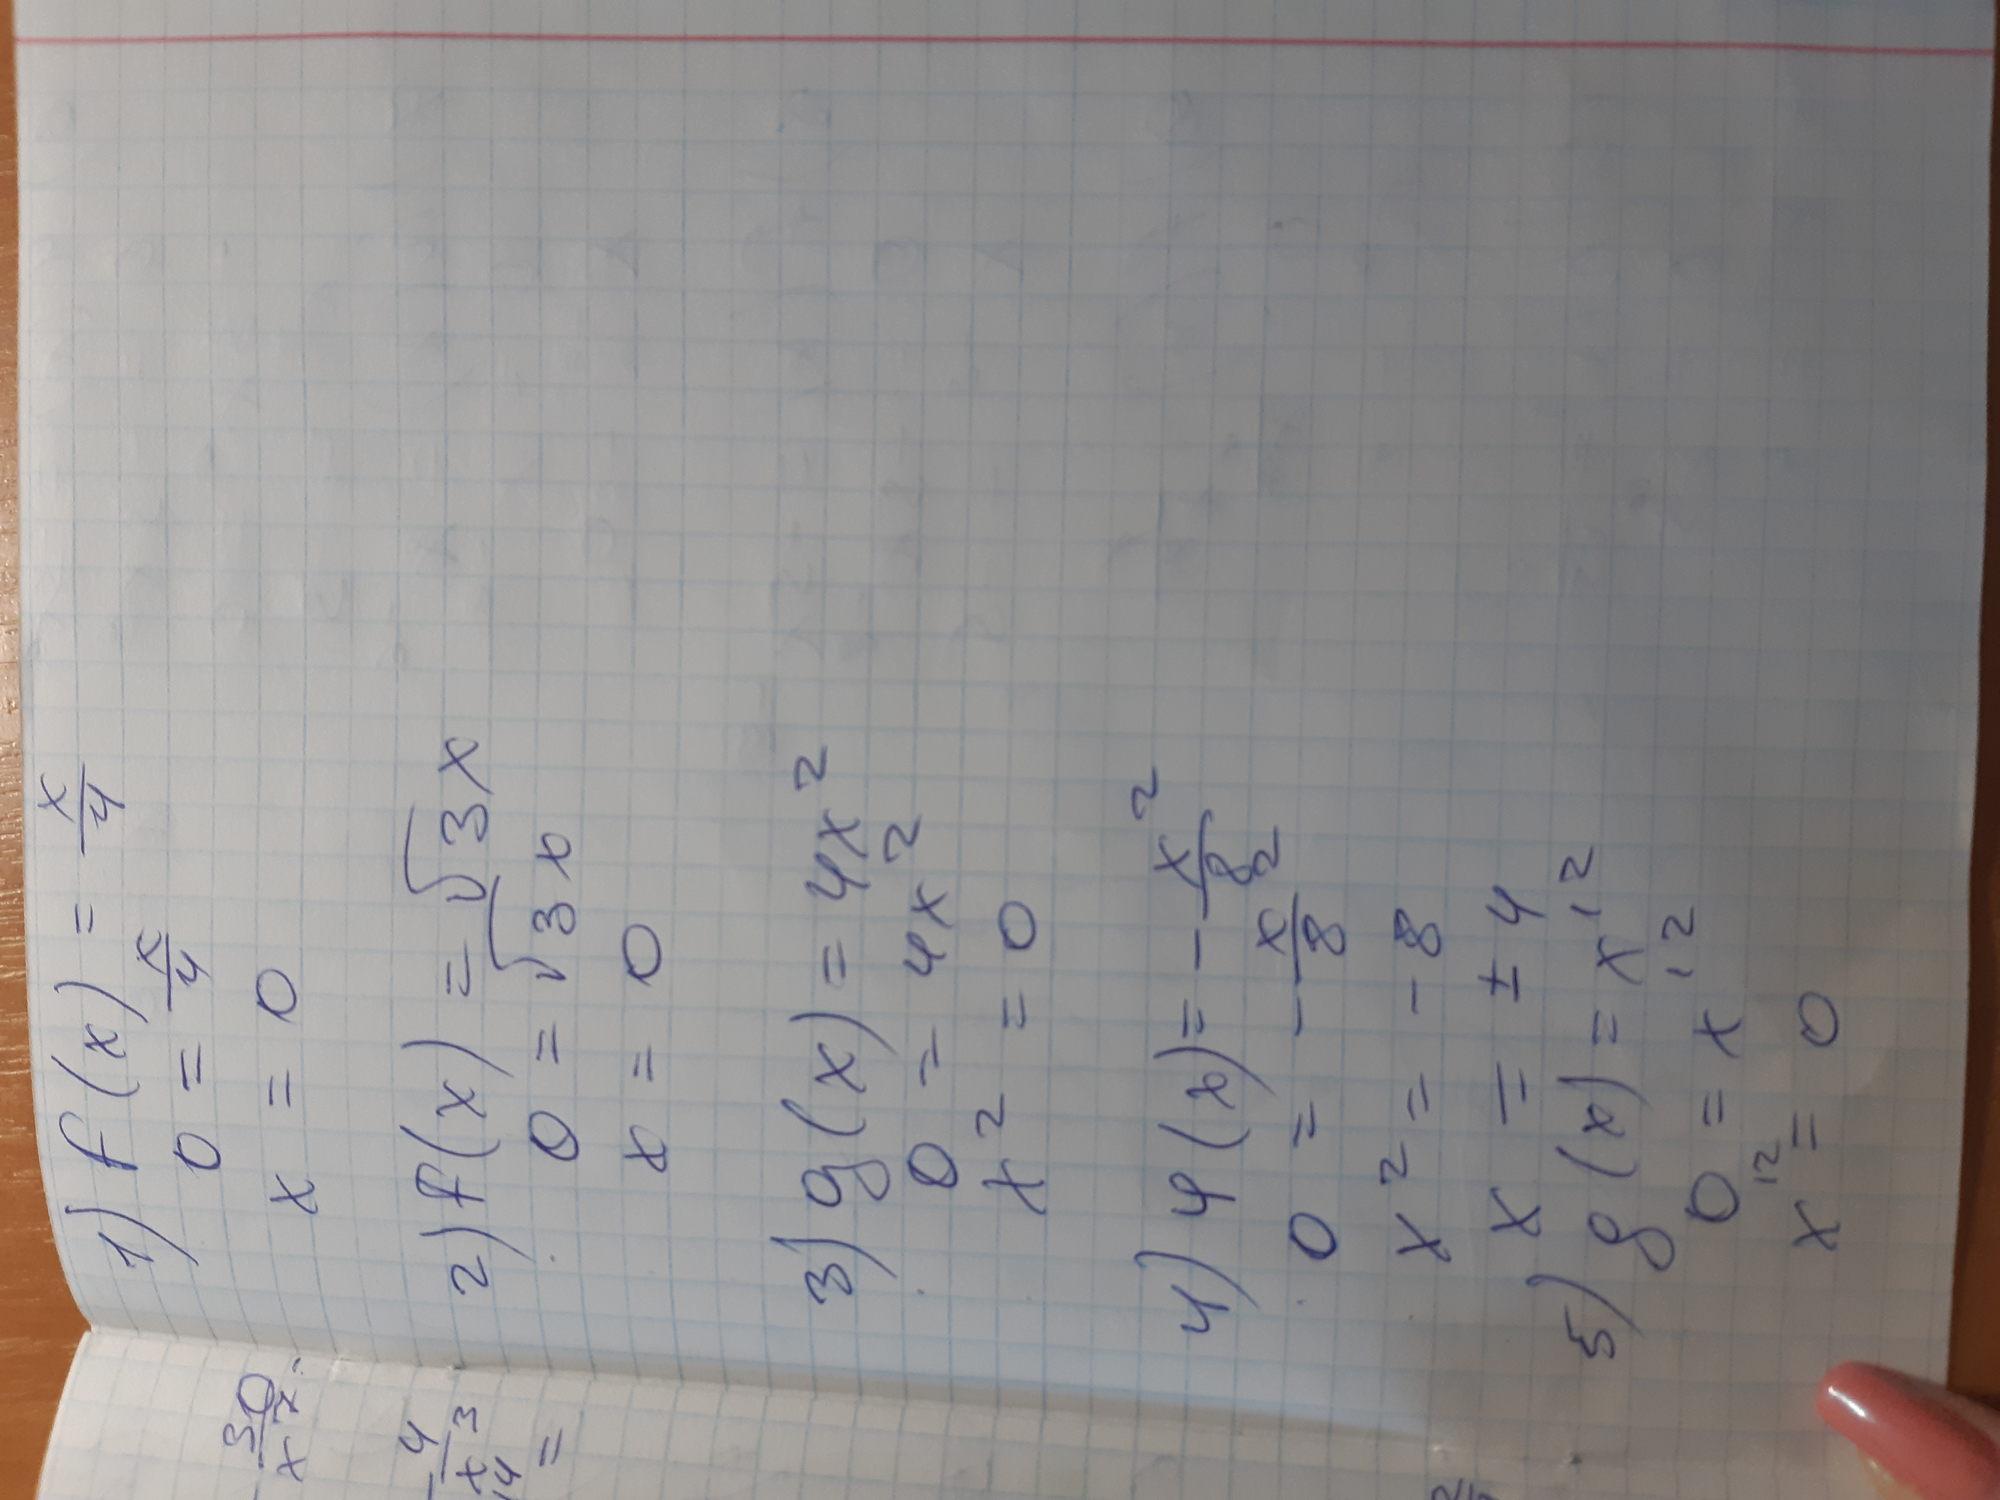 1) f(x) = x/4
0 = x/4
x = 0
2) f(x) = √3x
0 = √3x
x = 0
3) g(x) = 4x²
0 = 4x²
x² = 0
4) φ(x) = - x²/8
0 = - x²/8
x² = - 8
x = ± 4
5) g(x) = x¹²
0 = x¹²
x¹² = 0